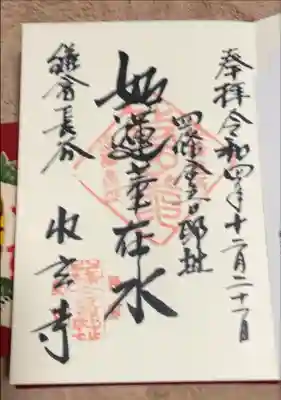 奉拝 令和四年十二月二十一日
四條金吾邸址
如蓮華在水
鎌倉長谷
收玄寺